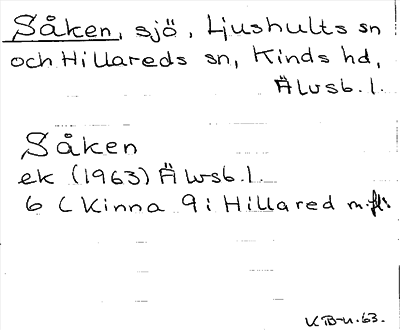 Såken, sjö, Ljushults sn
och Hillareds sn, Kinds hd,
Älvsb. l.
Såken
ek (1963) Älvsb. l.
6 C Kinna 9 i Hillared m.fl.
KB-n. 63.